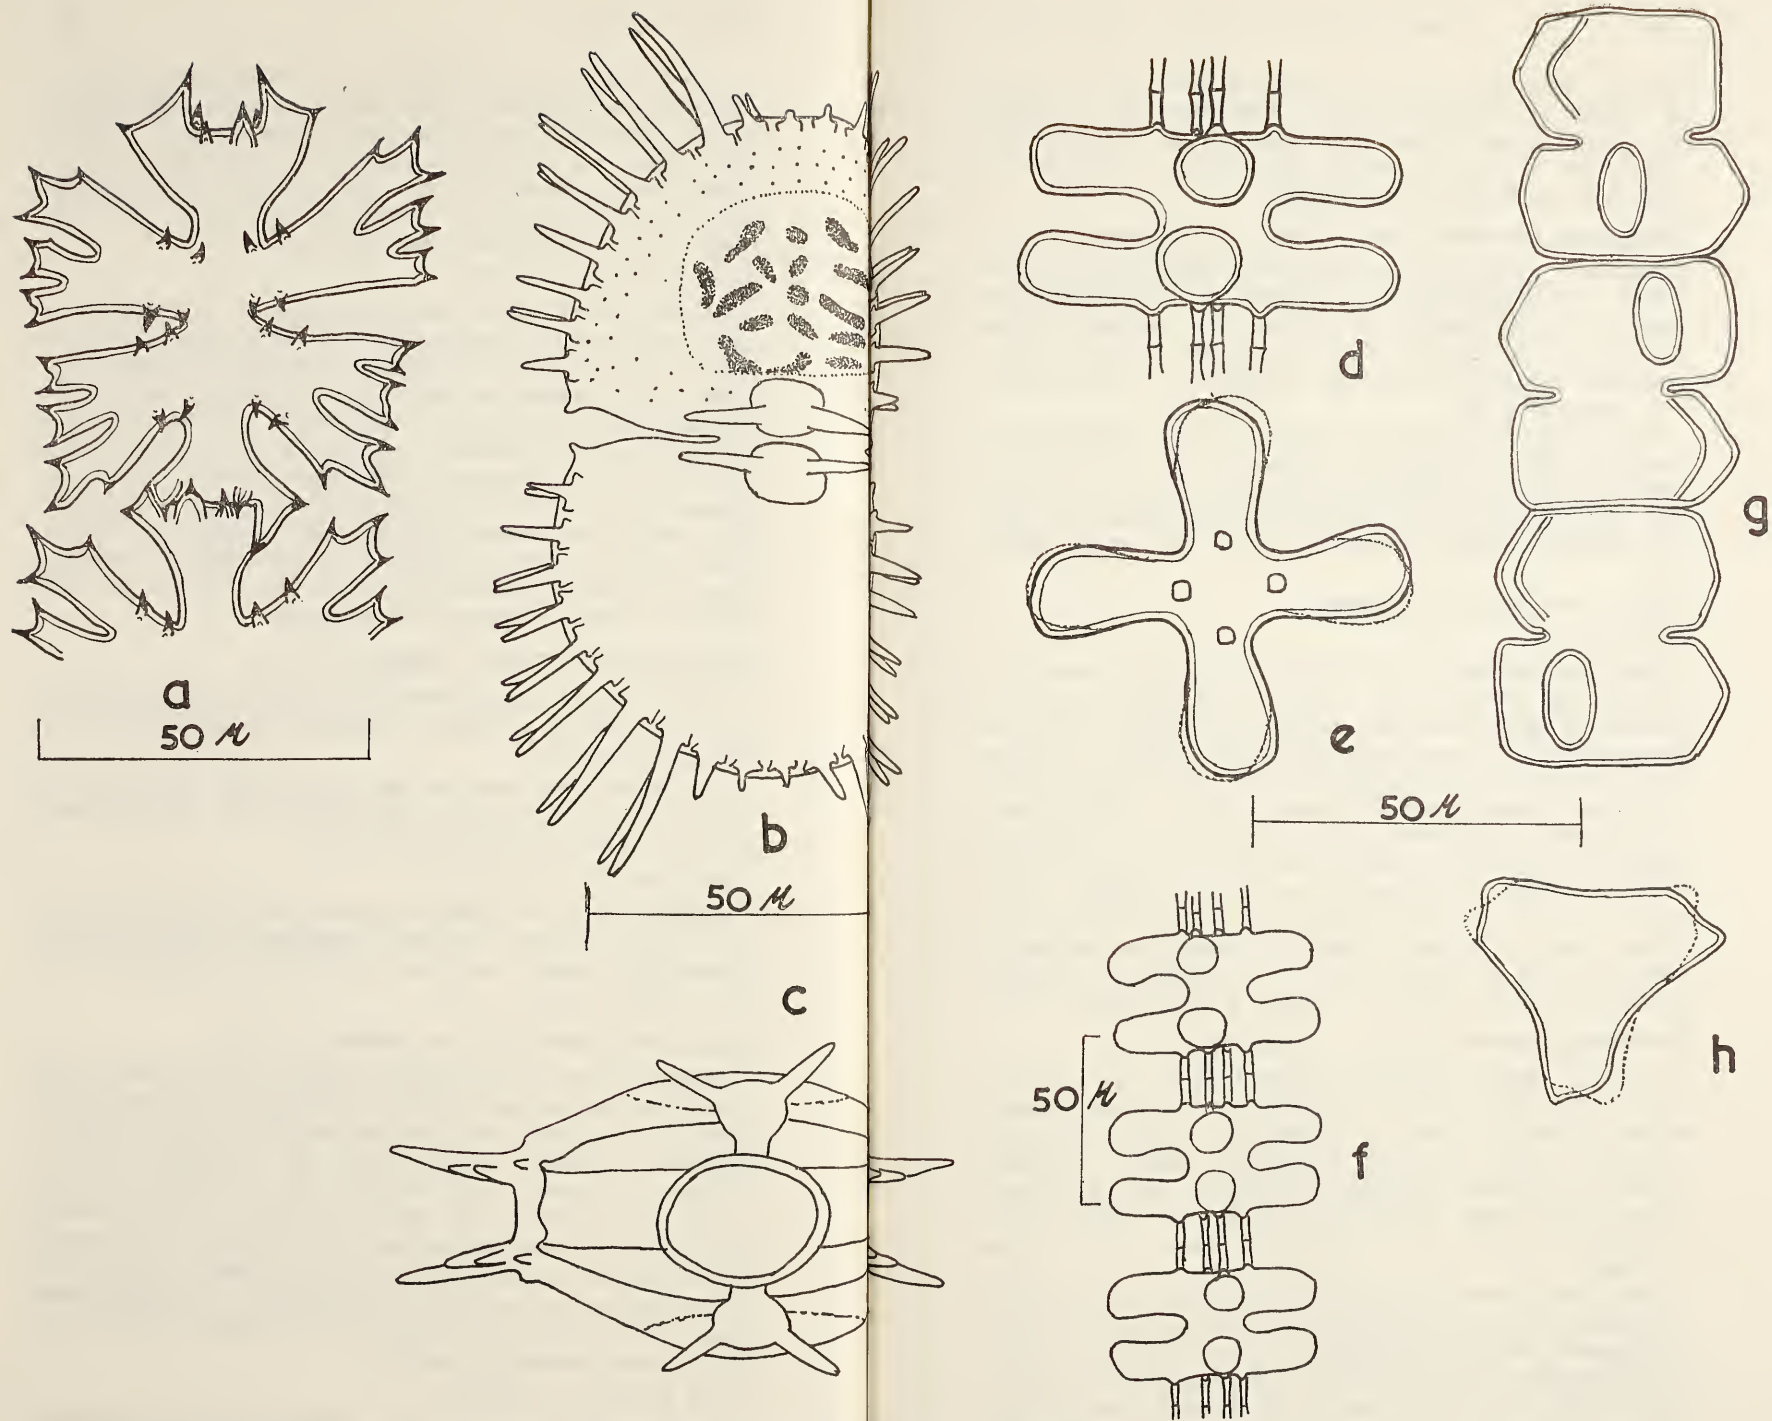 a
50 μ
b
50 μ
c
d
e
g
50 μ
h
50 μ
f